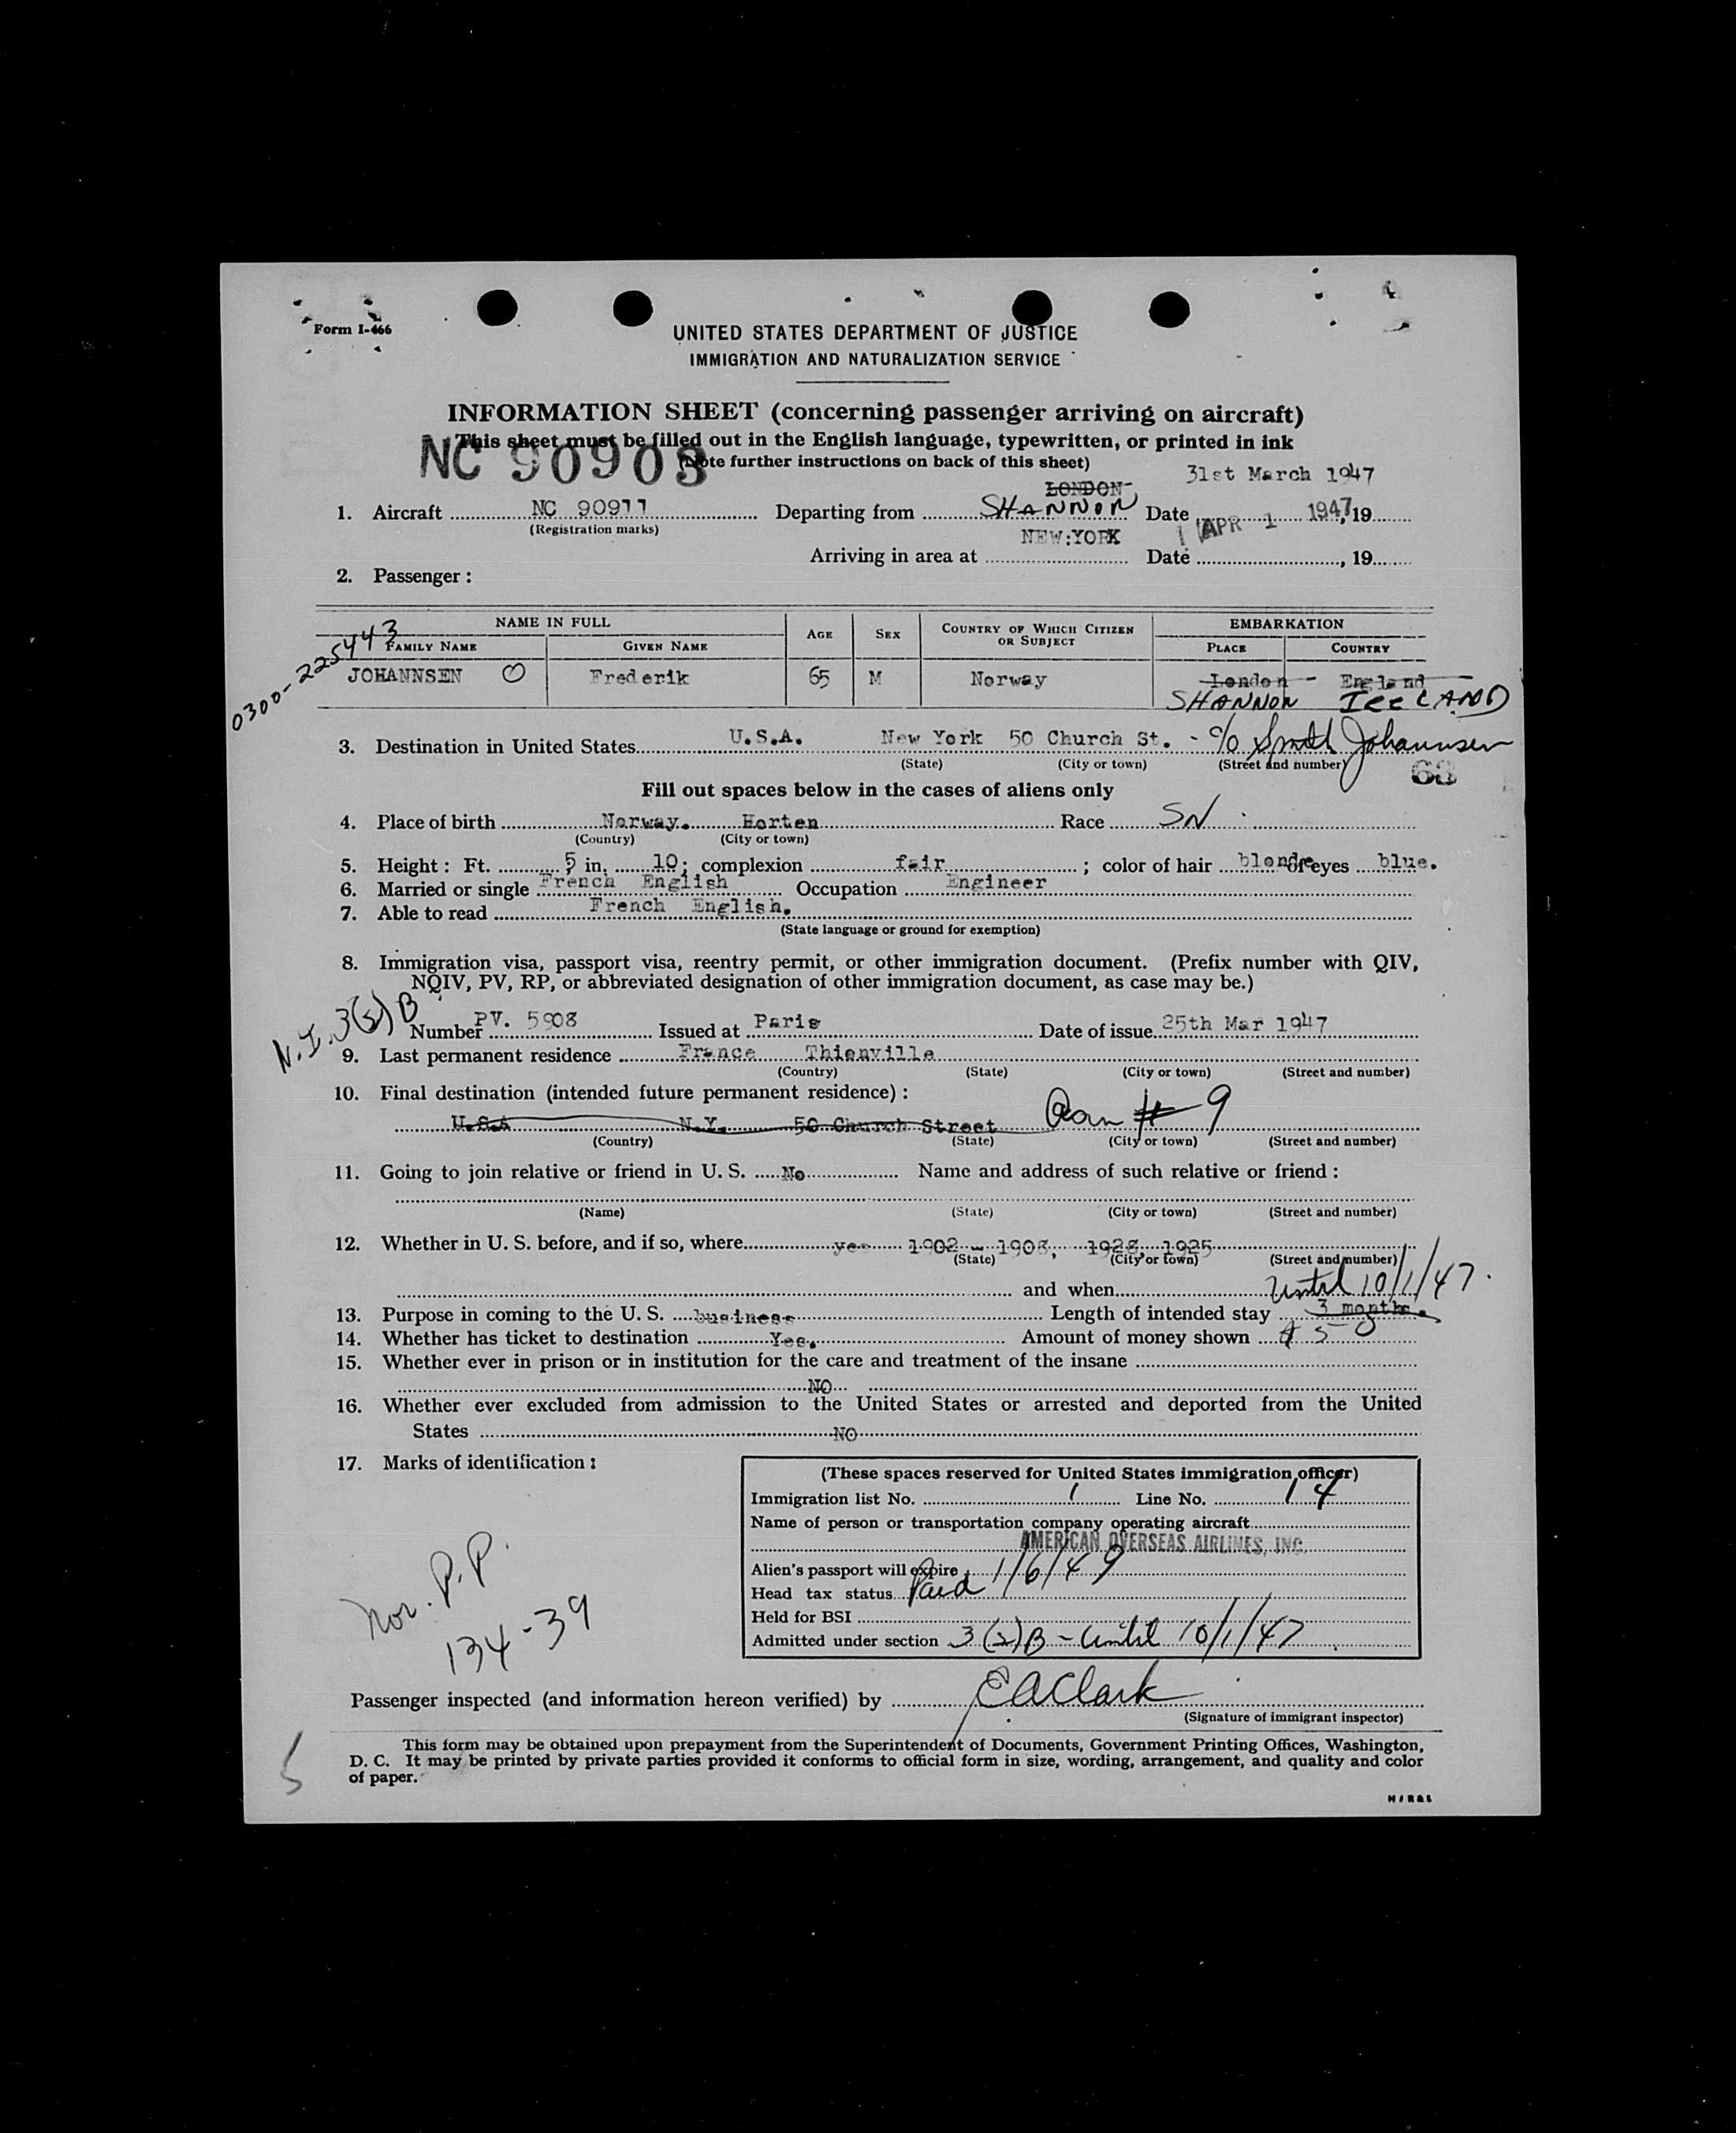 Form I-466
UNITED STATES DEPARTMENT OF JUSTICE
IMMIGRATION AND NATURALIZATION SERVICE
INFORMATION SHEET (concerning passenger arriving on aircraft)
This sheet must be filled out in the English language, typewritten, or printed in ink
(Note further instructions on back of this sheet)
NC 90903
31st March 1947
LONDON
1. Aircraft NC 90911 Departing from SHANNON Date APR 1 1947, 19
(Registration marks)
NEW:YORK
Arriving in area at Date , 19
2. Passenger :
0300-225443
NAME IN FULL AGE SEX COUNTRY OF WHICH CITIZEN OR SUBJECT EMBARKATION
FAMILY NAME GIVEN NAME PLACE COUNTRY
JOHANNSEN Frederik 65 M Norway London - England
SHANNON IreLAND
3. Destination in United States U.S.A. New York 50 Church St. - c/o Smith Johannsen
(State) (City or town) (Street and number)
63
Fill out spaces below in the cases of aliens only
4. Place of birth Norway. Horten Race SN
(Country) (City or town)
5. Height : Ft. 5 in. 10; complexion fair ; color of hair blonde eyes blue.
6. Married or single French English Occupation Engineer
7. Able to read French English.
(State language or ground for exemption)
8. Immigration visa, passport visa, reentry permit, or other immigration document. (Prefix number with QIV,
NQIV, PV, RP, or abbreviated designation of other immigration document, as case may be.)
N.I. 3(2)B
Number PV. 5908 Issued at Paris Date of issue 25th Mar 1947
9. Last permanent residence France Thionville
(Country) (State) (City or town) (Street and number)
10. Final destination (intended future permanent residence) :
U.S.A N.Y. 50 Church Street # 9
(Country) (State) (City or town) (Street and number)
11. Going to join relative or friend in U. S. No Name and address of such relative or friend :
(Name) (State) (City or town) (Street and number)
12. Whether in U. S. before, and if so, where yes 1902 - 1908, 1925
(State) (City or town) (Street and number)
and when Until 10/1/47.
13. Purpose in coming to the U. S. business Length of intended stay 3 months.
14. Whether has ticket to destination Yes. Amount of money shown $ 50
15. Whether ever in prison or in institution for the care and treatment of the insane
NO
16. Whether ever excluded from admission to the United States or arrested and deported from the United
States NO
17. Marks of identification :
Nor. P.P.
134-39
(These spaces reserved for United States immigration officer)
Immigration list No. 1 Line No. 14
Name of person or transportation company operating aircraft
AMERICAN OVERSEAS AIRLINES, INC.
Alien's passport will expire 1/6/49
Head tax status Paid
Held for BSI
Admitted under section 3(2)B - Until 10/1/47
Passenger inspected (and information hereon verified) by EAClark
(Signature of immigrant inspector)
This form may be obtained upon prepayment from the Superintendent of Documents, Government Printing Offices, Washington,
D. C. It may be printed by private parties provided it conforms to official form in size, wording, arrangement, and quality and color
of paper.
5